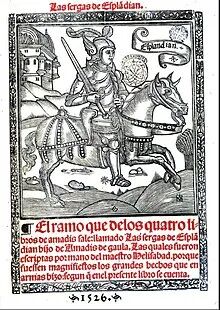 Las sergas de Esplãdian.
Esplandian.
¶ El ramo que delos quatro li
bros de amadis sale: llamado Las sergas de Esplã
dian hijo de Amadis de gaula. Las quales fueron
escriptas por mano del maestro Helisabad. porque
fuessen magnifiestos los grandes hechos que en
armas hizo. segun q̃ enel presente libro se cuenta.
1526.